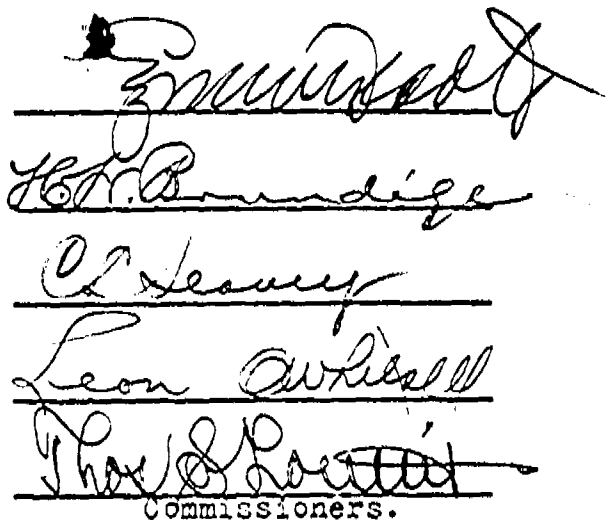 H. W. Brundige
C L Seavey
Leon O Whitsell
Thos S Louttit
Commissioners.